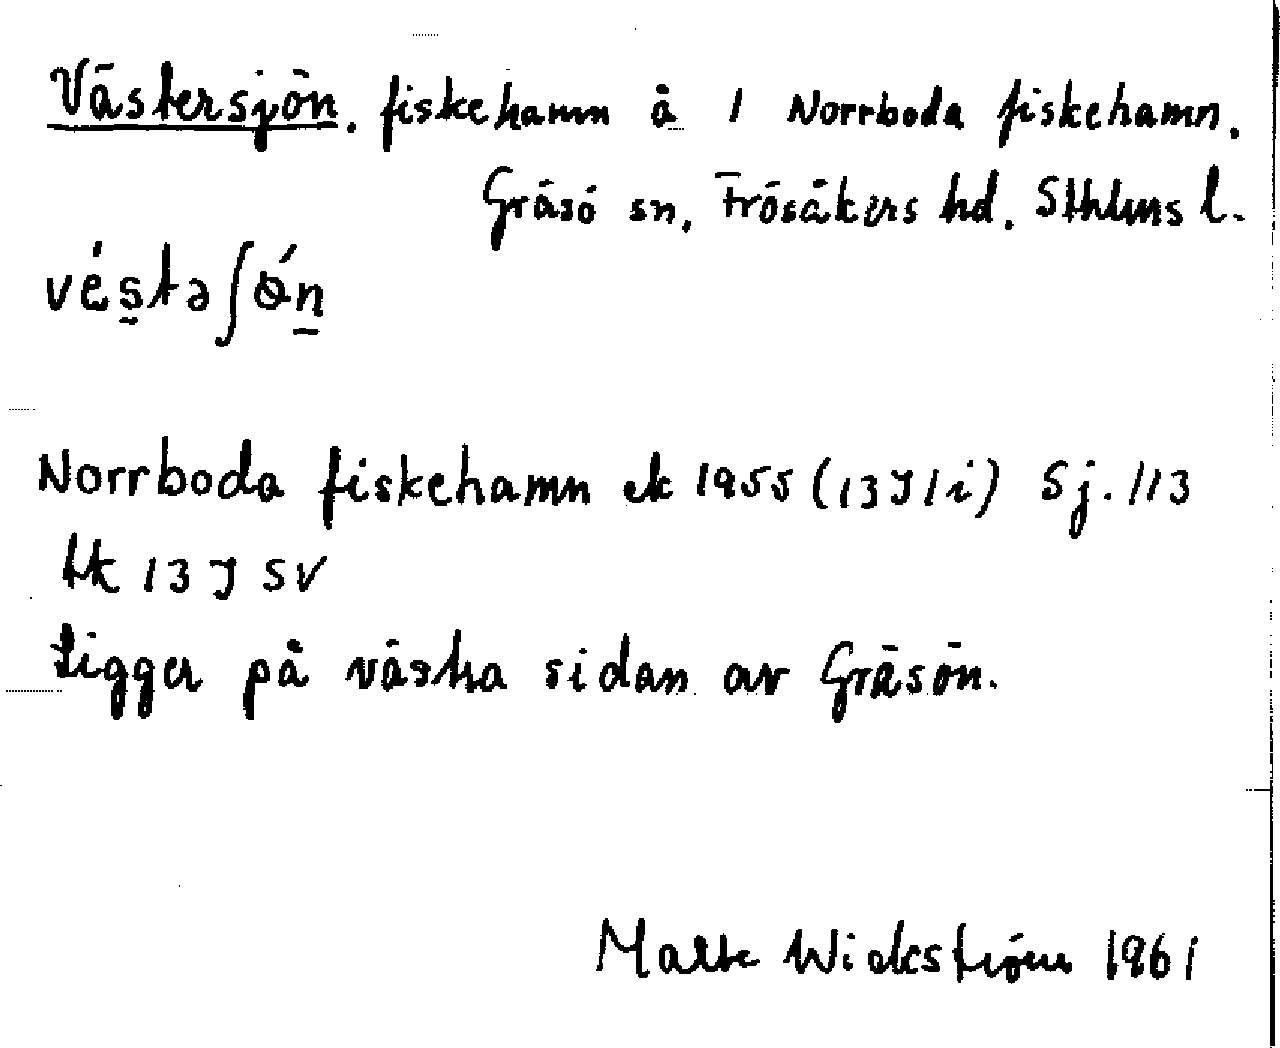 Västersjön. fiskehamn å 1 Norrboda fiskehamn.
Gräsö sn, Frösåkers hd. Sthlms l.
vés̱təʃɵ́ṉ
Norrboda fiskehamn ek 1955 (13J1i) Sj. 113
tk 13 J SV
Ligger på västra sidan av Gräsön.
Malte Wickström 1961